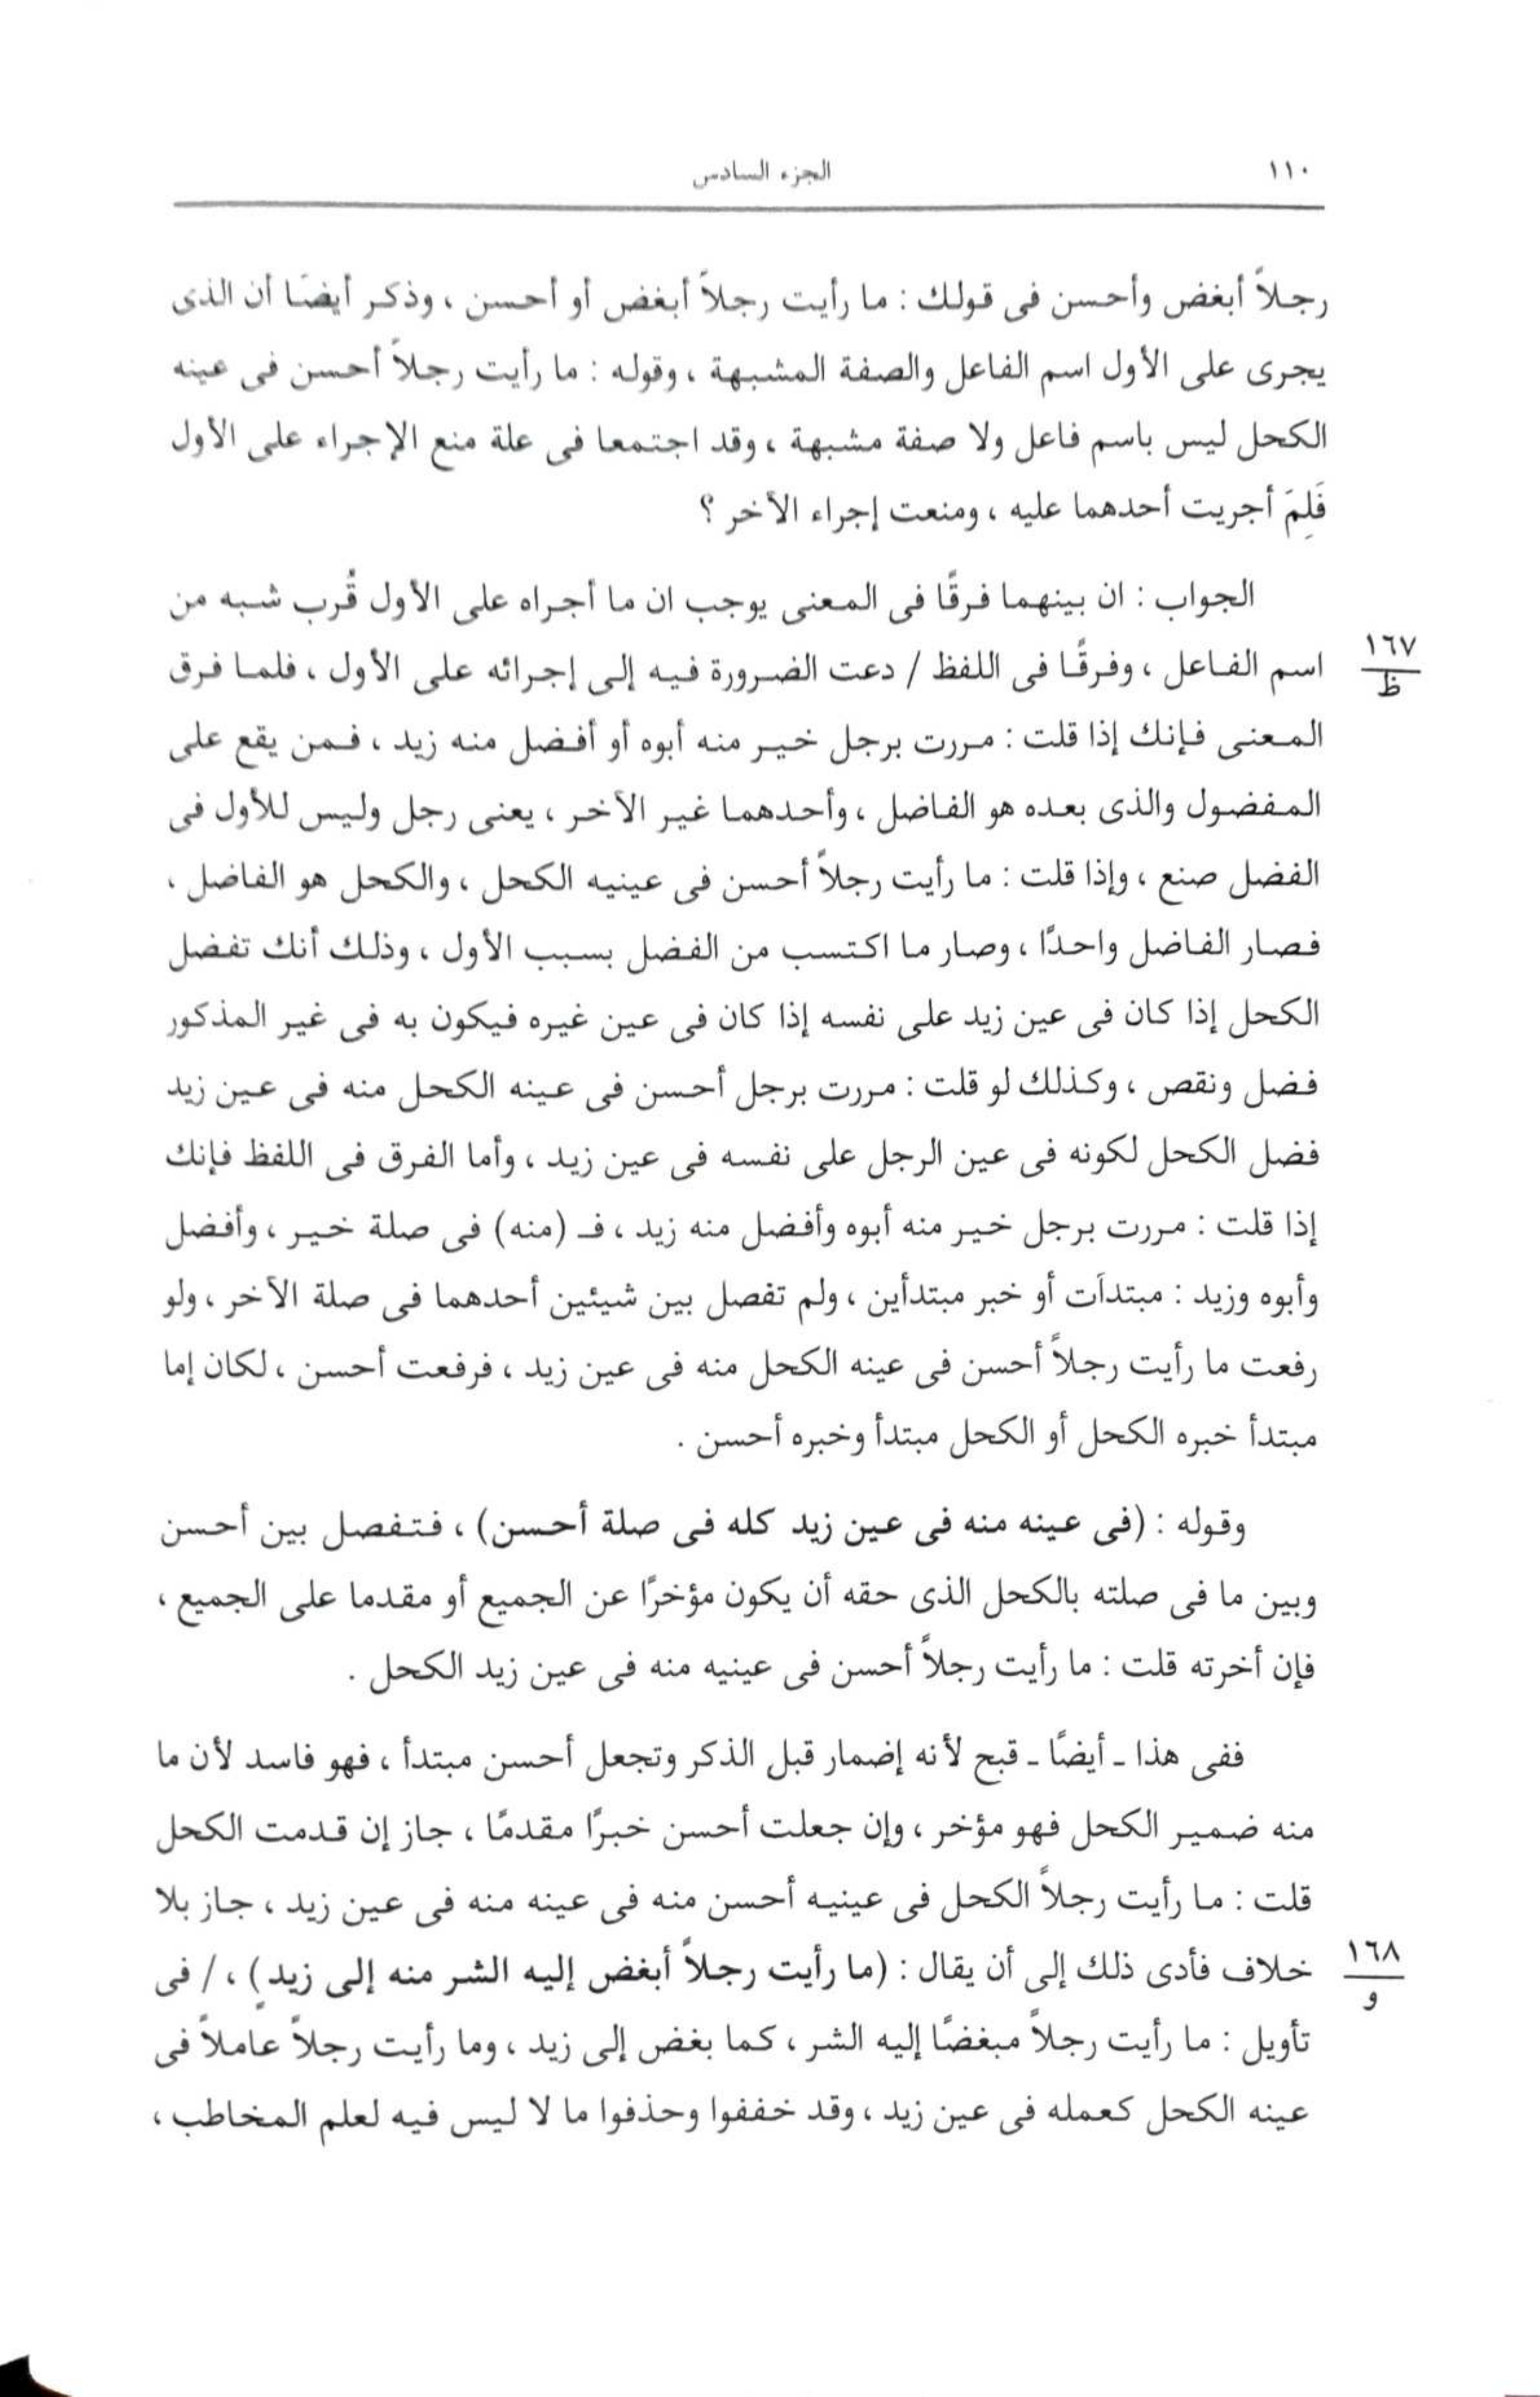 ١١٠ الجزء السادس
رجلاً أبغض وأحسن فى قولك : ما رأيت رجلاً أبغض أو أحسن ، وذكر أيضًا أن الذى
يجرى على الأول اسم الفاعل والصفة المشبهة ، وقوله : ما رأيت رجلاً أحسن فى عينه
الكحل ليس باسم فاعل ولا صفة مشبهة ، وقد اجتمعا فى علة منع الإجراء على الأول
فَلِمَ أجريت أحدهما عليه ، ومنعت إجراء الآخر ؟
الجواب : ان بينهما فرقًا فى المعنى يوجب ان ما أجراه على الأول قُرب شبه من
اسم الفاعل ، وفرقًا فى اللفظ / دعت الضرورة فيه إلى إجرائه على الأول ، فلما فرق
١٦٧
ظ
المعنى فإنك إذا قلت : مررت برجل خير منه أبوه أو أفضل منه زيد ، فمن يقع على
المفضول والذى بعده هو الفاضل ، وأحدهما غير الآخر ، يعنى رجل وليس للأول فى
الفضل صنع ، وإذا قلت : ما رأيت رجلاً أحسن فى عينيه الكحل ، والكحل هو الفاضل ،
فصار الفاضل واحدًا ، وصار ما اكتسب من الفضل بسبب الأول ، وذلك أنك تفضل
الكحل إذا كان فى عين زيد على نفسه إذا كان فى عين غيره فيكون به فى غير المذكور
فضل ونقص ، وكذلك لو قلت : مررت برجل أحسن فى عينه الكحل منه فى عين زيد
فضل الكحل لكونه فى عين الرجل على نفسه فى عين زيد ، وأما الفرق فى اللفظ فإنك
إذا قلت : مررت برجل خير منه أبوه وأفضل منه زيد ، فـ (منه) فى صلة خير ، وأفضل
وأبوه وزيد : مبتدآت أو خبر مبتدأين ، ولم تفصل بين شيئين أحدهما فى صلة الآخر ، ولو
رفعت ما رأيت رجلاً أحسن فى عينه الكحل منه فى عين زيد ، فرفعت أحسن ، لكان إما
مبتدأ خبره الكحل أو الكحل مبتدأ وخبره أحسن .
وقوله : (فى عينه منه فى عين زيد كله فى صلة أحسن) ، فتفصل بين أحسن
وبين ما فى صلته بالكحل الذى حقه أن يكون مؤخرًا عن الجميع أو مقدما على الجميع ،
فإن أخرته قلت : ما رأيت رجلاً أحسن فى عينيه منه فى عين زيد الكحل .
ففى هذا ـ أيضًا ـ قبح لأنه إضمار قبل الذكر وتجعل أحسن مبتدأ ، فهو فاسد لأن ما
منه ضمير الكحل فهو مؤخر ، وإن جعلت أحسن خبرًا مقدمًا ، جاز إن قدمت الكحل
قلت : ما رأيت رجلاً الكحل فى عينيه أحسن منه فى عينه منه فى عين زيد ، جاز بلا
خلاف فأدى ذلك إلى أن يقال : (ما رأيت رجلاً أبغض إليه الشر منه إلى زيد) ، / فى
١٦٨
و
تأويل : ما رأيت رجلاً مبغضًا إليه الشر ، كما بغض إلى زيد ، وما رأيت رجلاً عاملاً فى
عينه الكحل كعمله فى عين زيد ، وقد خففوا وحذفوا ما لا ليس فيه لعلم المخاطب ،